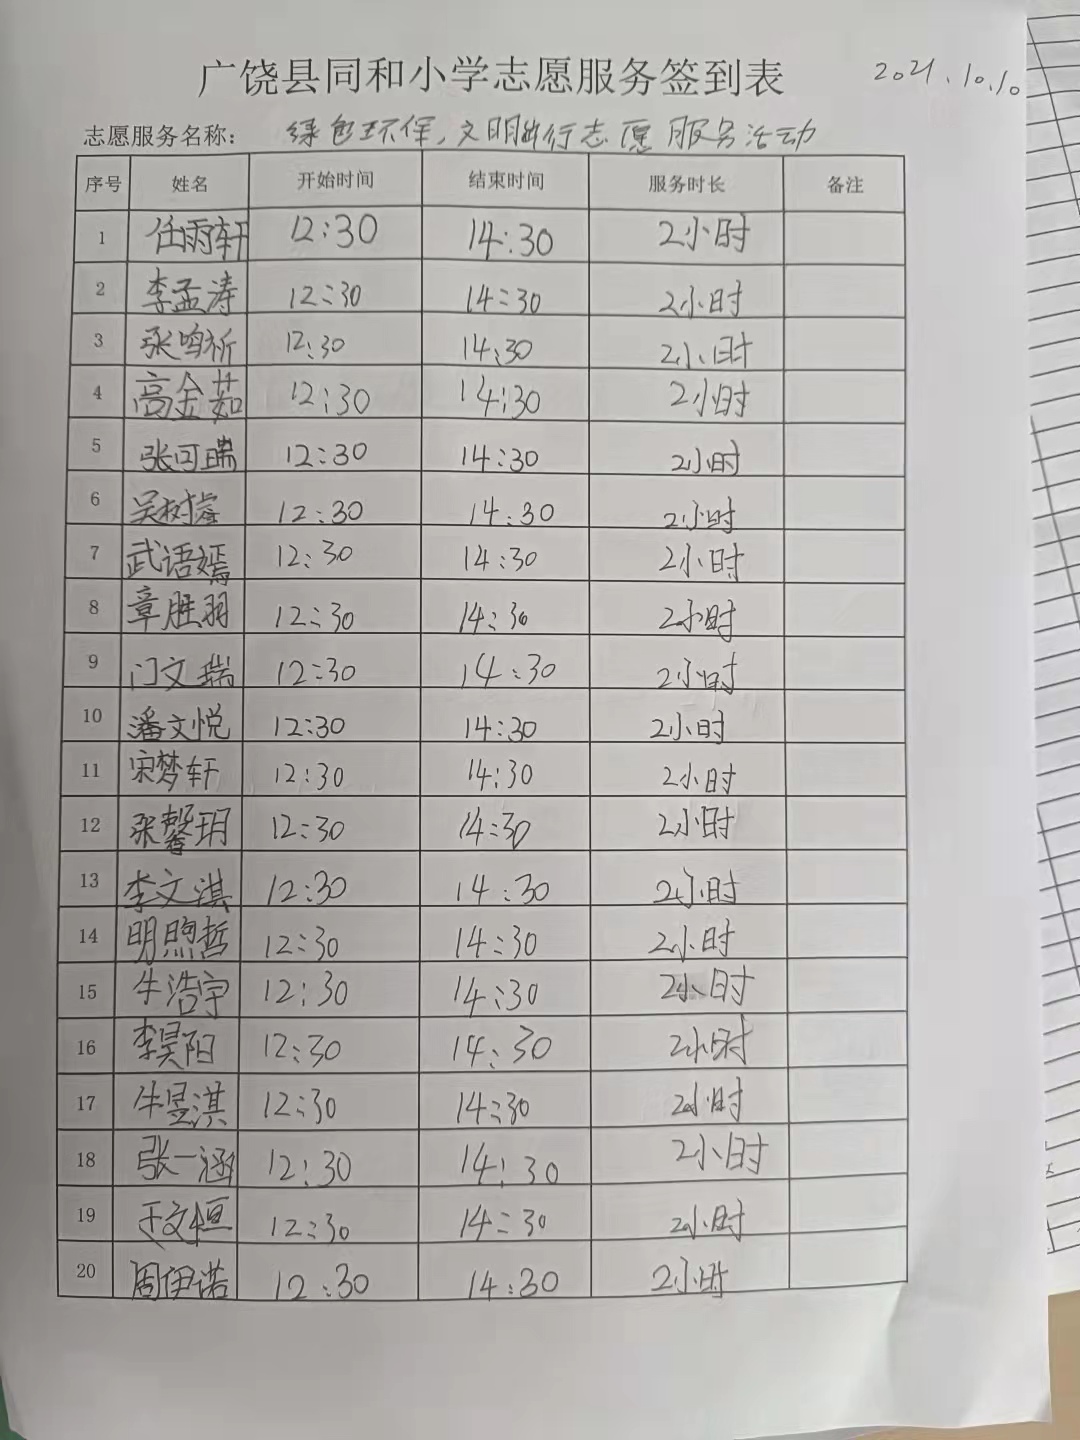 广饶县同和小学志愿服务签到表 2021.10.10
志愿服务名称: 绿色环保,文明出行志愿服务活动
序号 姓名 开始时间 结束时间 服务时长 备注
1 任雨轩 12:30 14:30 2小时
2 李孟涛 12:30 14:30 2小时
3 张鸣祈 12:30 14:30 2小时
4 高金茹 12:30 14:30 2小时
5 张可瑞 12:30 14:30 2小时
6 吴树睿 12:30 14:30 2小时
7 武语嫣 12:30 14:30 2小时
8 章胜羽 12:30 14:30 2小时
9 门文瑞 12:30 14:30 2小时
10 潘文悦 12:30 14:30 2小时
11 宋梦轩 12:30 14:30 2小时
12 张馨玥 12:30 14:30 2小时
13 李文淇 12:30 14:30 2小时
14 明煦哲 12:30 14:30 2小时
15 牛浩宇 12:30 14:30 2小时
16 李昊阳 12:30 14:30 2小时
17 牛昱淇 12:30 14:30 2小时
18 张一涵 12:30 14:30 2小时
19 12:30 14:30 2小时
20 周伊诺 12:30 14:30 2小时